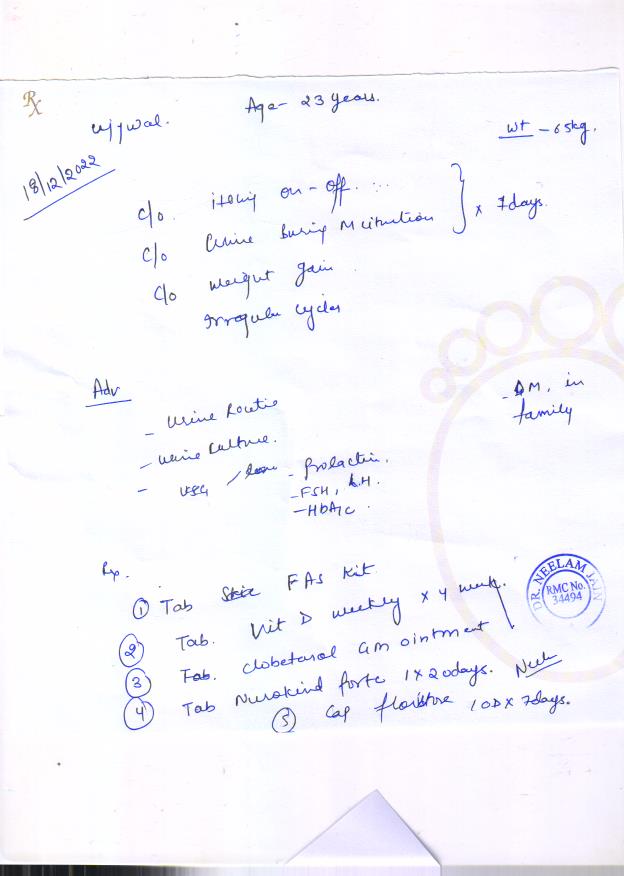 Rx
Age- 23 years.
Ujjwal.
wt - 65kg.
18/12/2022
C/o. itching on-off...
C/o Urine During Micturition
} x 7 days.
C/o weight gain
irregular cycles
Adv
- DM, in
family
- Urine Routine
- Urine Culture.
- USG
- Prolactin.
- FSH, LH.
- HbA1c.
Rx.
① Tab FAS Kit
② Tab. Vit D weekly x 4 week.
③ Tab. Clobetasol GM ointment
④ Tab Nurokind forte 1 x 20days.
⑤ Cap 1 OD x 7days.
DR. NEELAM JAIN
RMC No.
34494